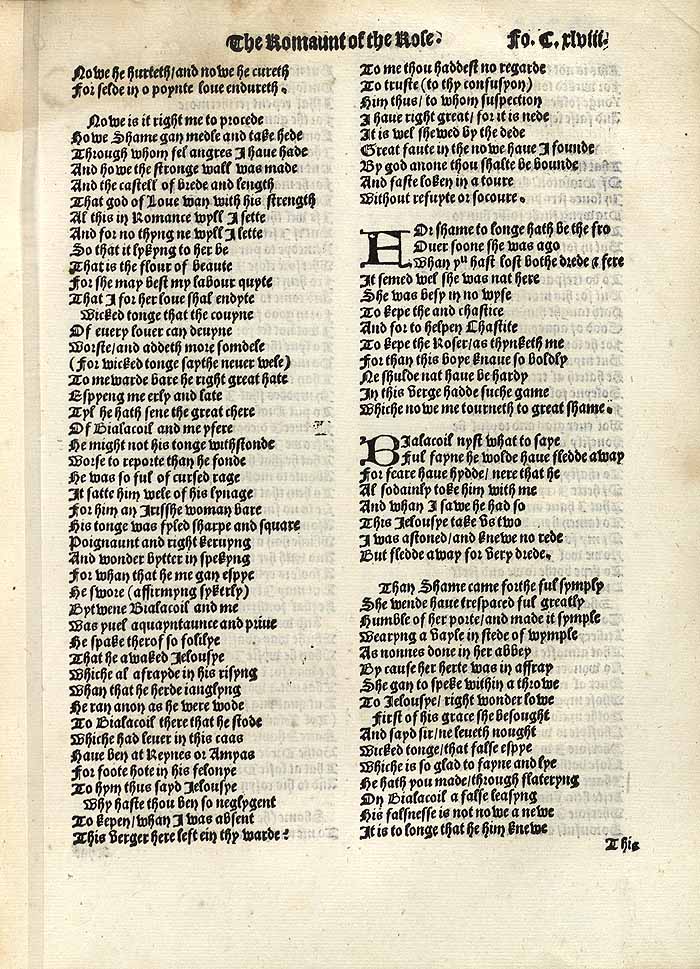 The Romaunt of the Rose. Fo. C. xlviii.
Nowe he hurteth/and nowe he cureth
For selde in o poynte loue endureth.
Nowe is it right me to procede
Howe Shame gan medle and take hede
Through whom fel angres I haue hade
And howe the stronge wall was made
And the castell of brede and length
That god of Loue wan with his strength
Al this in Romance wyll I sette
And for no thyng ne wyll I lette
So that it lykyng to her be
That is the flour of beaute
For she may best my labour quyte
That I for her loue shal endyte
Wicked tonge that the couyne
Of euery louer can deuyne
Worste/and addeth more somdele
(For wicked tonge saythe neuer wele)
To mewarde bare he right great hate
Espyeng me erly and late
Tyl he hath sene the great chere
Of Bialacoil and me yfere
He might not his tonge withstonde
Worse to reporte than he fonde
He was so ful of cursed rage
It satte him wele of his lynage
For him an Irisshe woman bare
His tonge was fyled sharpe and square
Poignaunt and right keruyng
And wonder bytter in spekyng
For whan that he me gan espye
He swore (affirmyng sykerly)
Bytwene Bialacoil and me
Was yuel aquayntaunce and priue
He spake therof so folilye
That he awaked Jelousye
Whiche al afrayde in his risyng
Whan that he herde ianglyng
He ran anon as he were wode
To Bialacoil there that he stode
Whiche had leuer in this caas
Haue ben at Reynes or Amyas
For foote hote in his felonye
To hym thus sayd Jelousye
Why haste thou ben so neglygent
To kepen/whan I was absent
This verger here left ein thy warde:
To me thou haddest no regarde
To truste (to thy confusyon)
Him thus/to whom suspection
I haue right great/for it is nede
It is wel shewed by the dede
Great faute in the nowe haue I founde
By god anone thou shalte be bounde
And faste loken in a toure
Without refuyte or socoure.
FOr shame to longe hath be the fro
Ouer soone she was ago
Whan yu hast lost bothe drede & fere
It semed wel she was nat here
She was besy in no wyse
To kepe the and chastice
And for to helpen Chastite
To kepe the Roser/as thynketh me
For than this boye knaue so boldly
Ne shulde nat haue be hardy
In this verge hadde suche game
Whiche nowe me tourneth to great shame.
BIalacoil nyst what to saye
Ful fayne he wolde haue fledde away
For feare haue hydde/nere that he
Al sodainly toke him with me
And whan I sawe he had so
This Jelousye take vs two
I was astoned/and knewe no rede
But fledde away for very drede.
Than Shame came forthe ful symply
She wende haue trespaced ful greatly
Humble of her porte/and made it symple
Wearyng a vayle in stede of wymple
As nonnes done in her abbey
By cause her herte was in affray
She gan to speke within a throwe
To Jelousye/right wonder lowe
First of his grace she besought
And sayd sir/ne leueth nought
Wicked tonge/that false espye
Whiche is so glad to fayne and lye
He hath you made/through flateryng
On Bialacoil a false leasyng
His falsnesse is not nowe a newe
It is to longe that he him knewe
This